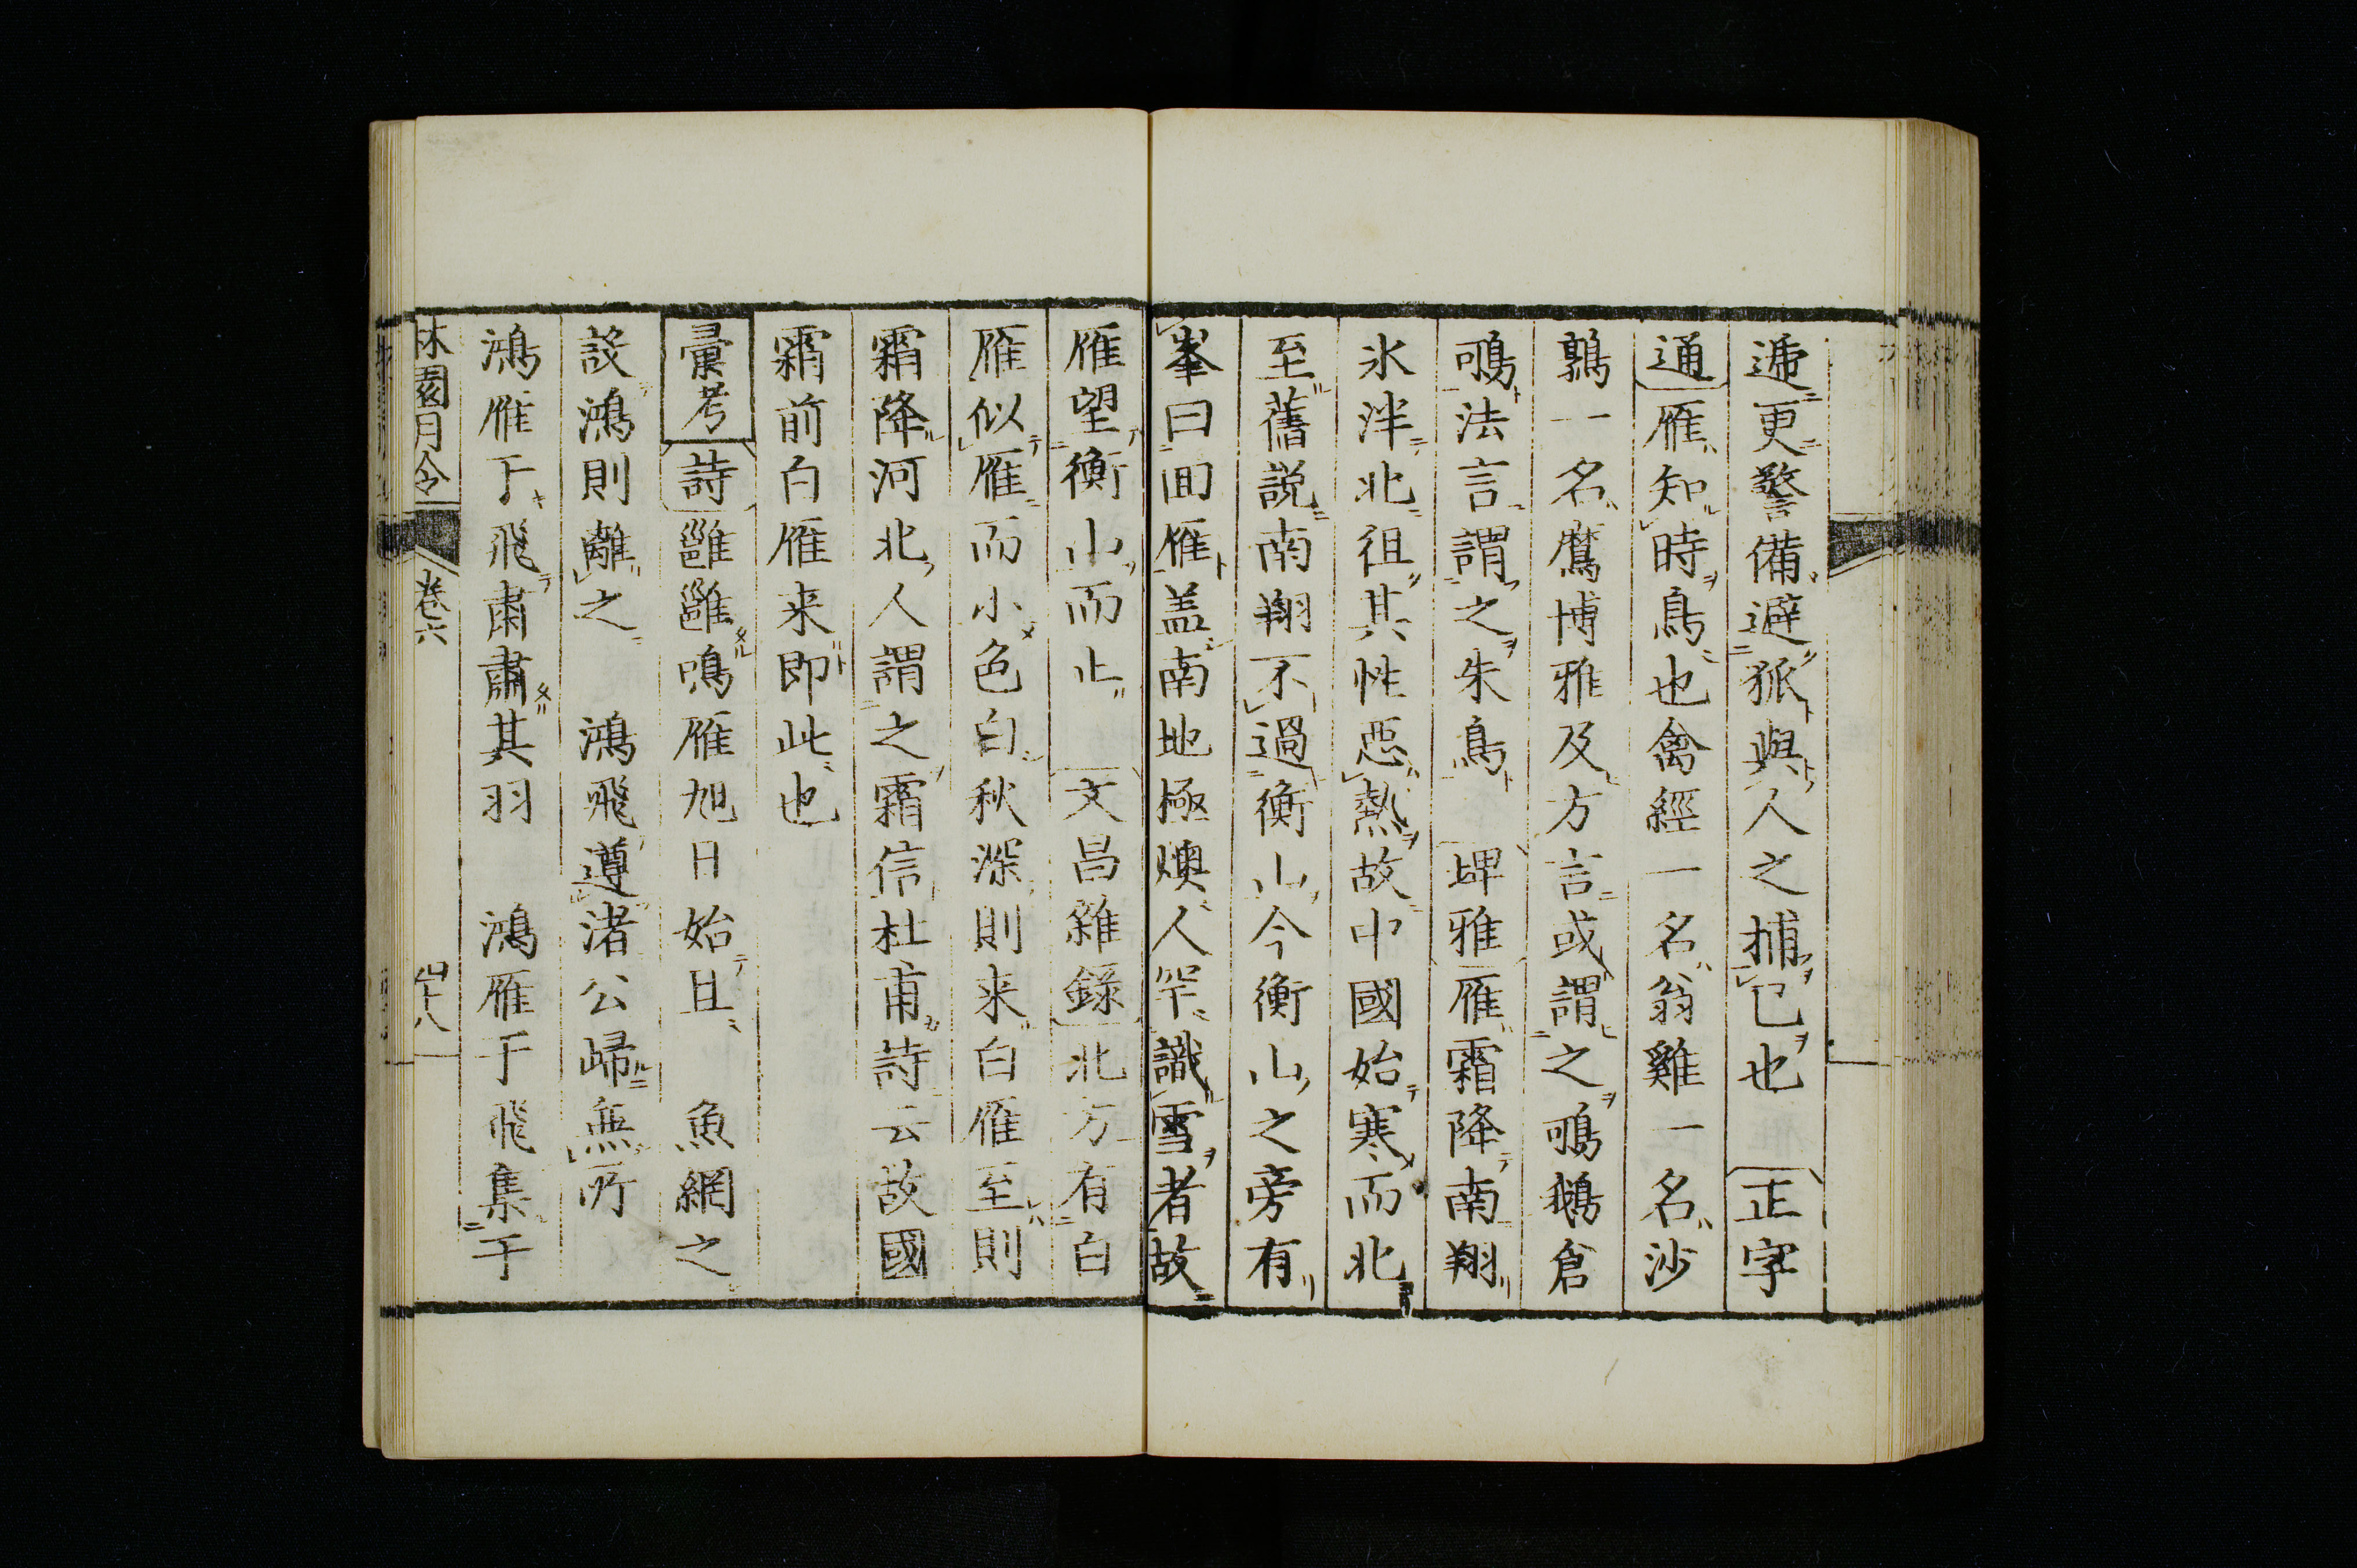 遞更警備避狐與人之捕已也　正字
通雁知時鳥也禽經一名翁雞一名沙
鶉一名鷹博雅及方言或謂之鳴鵝倉
鳴法言謂之朱鳥　埤雅雁霜降南翔
氷泮北徂其性惡熱故中國始寒而北
至舊説南翔不過衡山今衡山之旁有
峯曰囬雁盖南地極燠人罕識雪者故
雁望衡山而止　文昌雜錄北方有白
雁似雁而小色白秋深則来白雁至則
霜降河北人謂之霜信杜甫詩云故國
霜前白雁来即此也
彙考詩雝雝鳴雁旭日始且　魚網之
設鴻則離之　鴻飛遵渚公歸無所
鴻雁于飛肅肅其羽　鴻雁于飛集于
林園月令　卷六　四十八